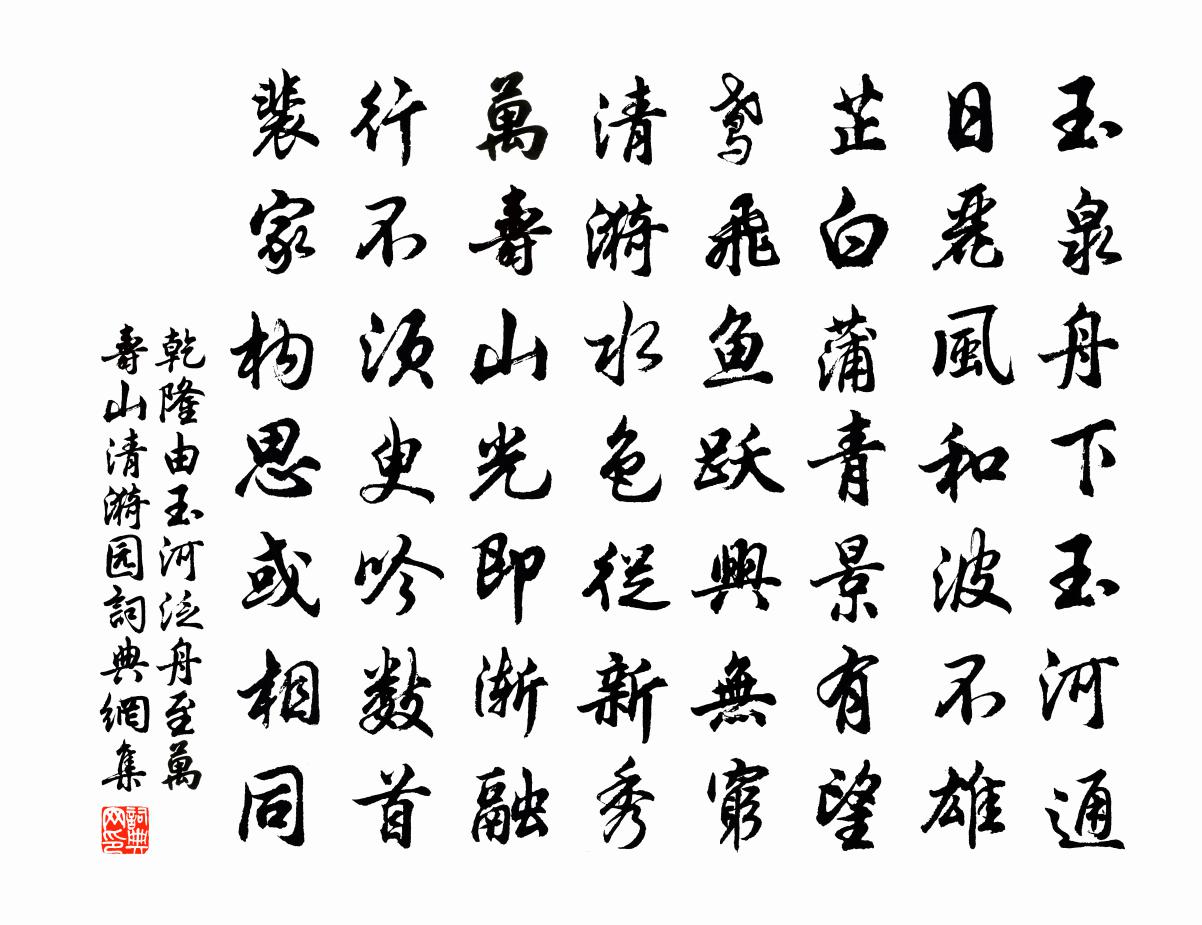 玉泉舟下玉河通
日麗風和波不雄
芷白蒲青景有望
鸢飛鱼跃興無窮
清漪水色從新秀
萬壽山光即渐融
行不须臾吟数首
裴家构思或相同
乾隆由玉河泛舟至萬
壽山清漪园詞典網集
詞典
网印